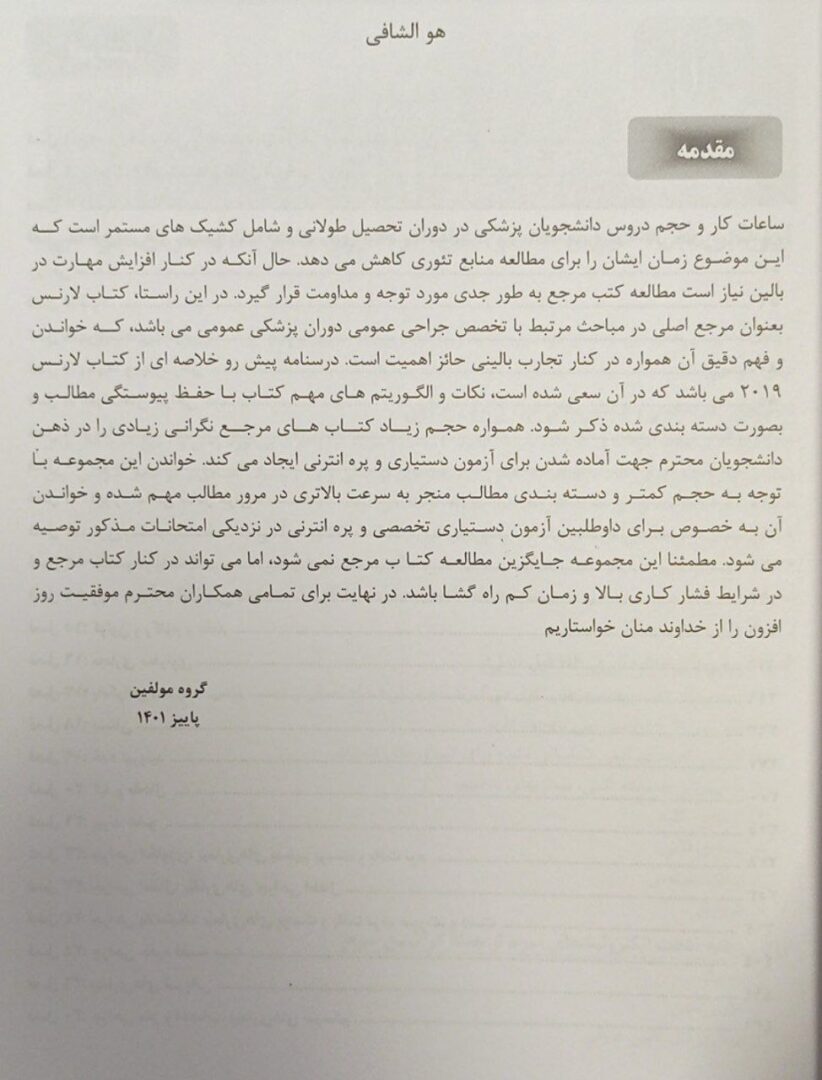 هو الشافی
مقدمه
ساعات کار و حجم دروس دانشجویان پزشکی در دوران تحصیل طولانی و شامل کشیک های مستمر است که
این موضوع زمان ایشان را برای مطالعه منابع تئوری کاهش می دهد. حال آنکه در کنار افزایش مهارت در
بالین نیاز است مطالعه کتب مرجع به طور جدی مورد توجه و مداومت قرار گیرد. در این راستا، کتاب لارنس
بعنوان مرجع اصلی در مباحث مرتبط با تخصص جراحی عمومی دوران پزشکی عمومی می باشد، که خواندن
و فهم دقیق آن همواره در کنار تجارب بالینی حائز اهمیت است. درسنامه پیش رو خلاصه ای از کتاب لارنس
۲۰۱۹ می باشد که در آن سعی شده است، نکات و الگوریتم های مهم کتاب با حفظ پیوستگی مطالب و
بصورت دسته بندی شده ذکر شود. همواره حجم زیاد کتاب های مرجع نگرانی زیادی را در ذهن
دانشجویان محترم جهت آماده شدن برای آزمون دستیاری و پره انترنی ایجاد می کند. خواندن این مجموعه با
توجه به حجم کمتر و دسته بندی مطالب منجر به سرعت بالاتری در مرور مطالب مهم شده و خواندن
آن به خصوص برای داوطلبین آزمون دستیاری تخصصی و پره انترنی در نزدیکی امتحانات مذکور توصیه
می شود. مطمئنا این مجموعه جایگزین مطالعه کتا ب مرجع نمی شود، اما می تواند در کنار کتاب مرجع و
در شرایط فشار کاری بالا و زمان کم راه گشا باشد. در نهایت برای تمامی همکاران محترم موفقیت روز
افزون را از خداوند منان خواستاریم
گروه مولفین
پاییز ۱۴۰۱